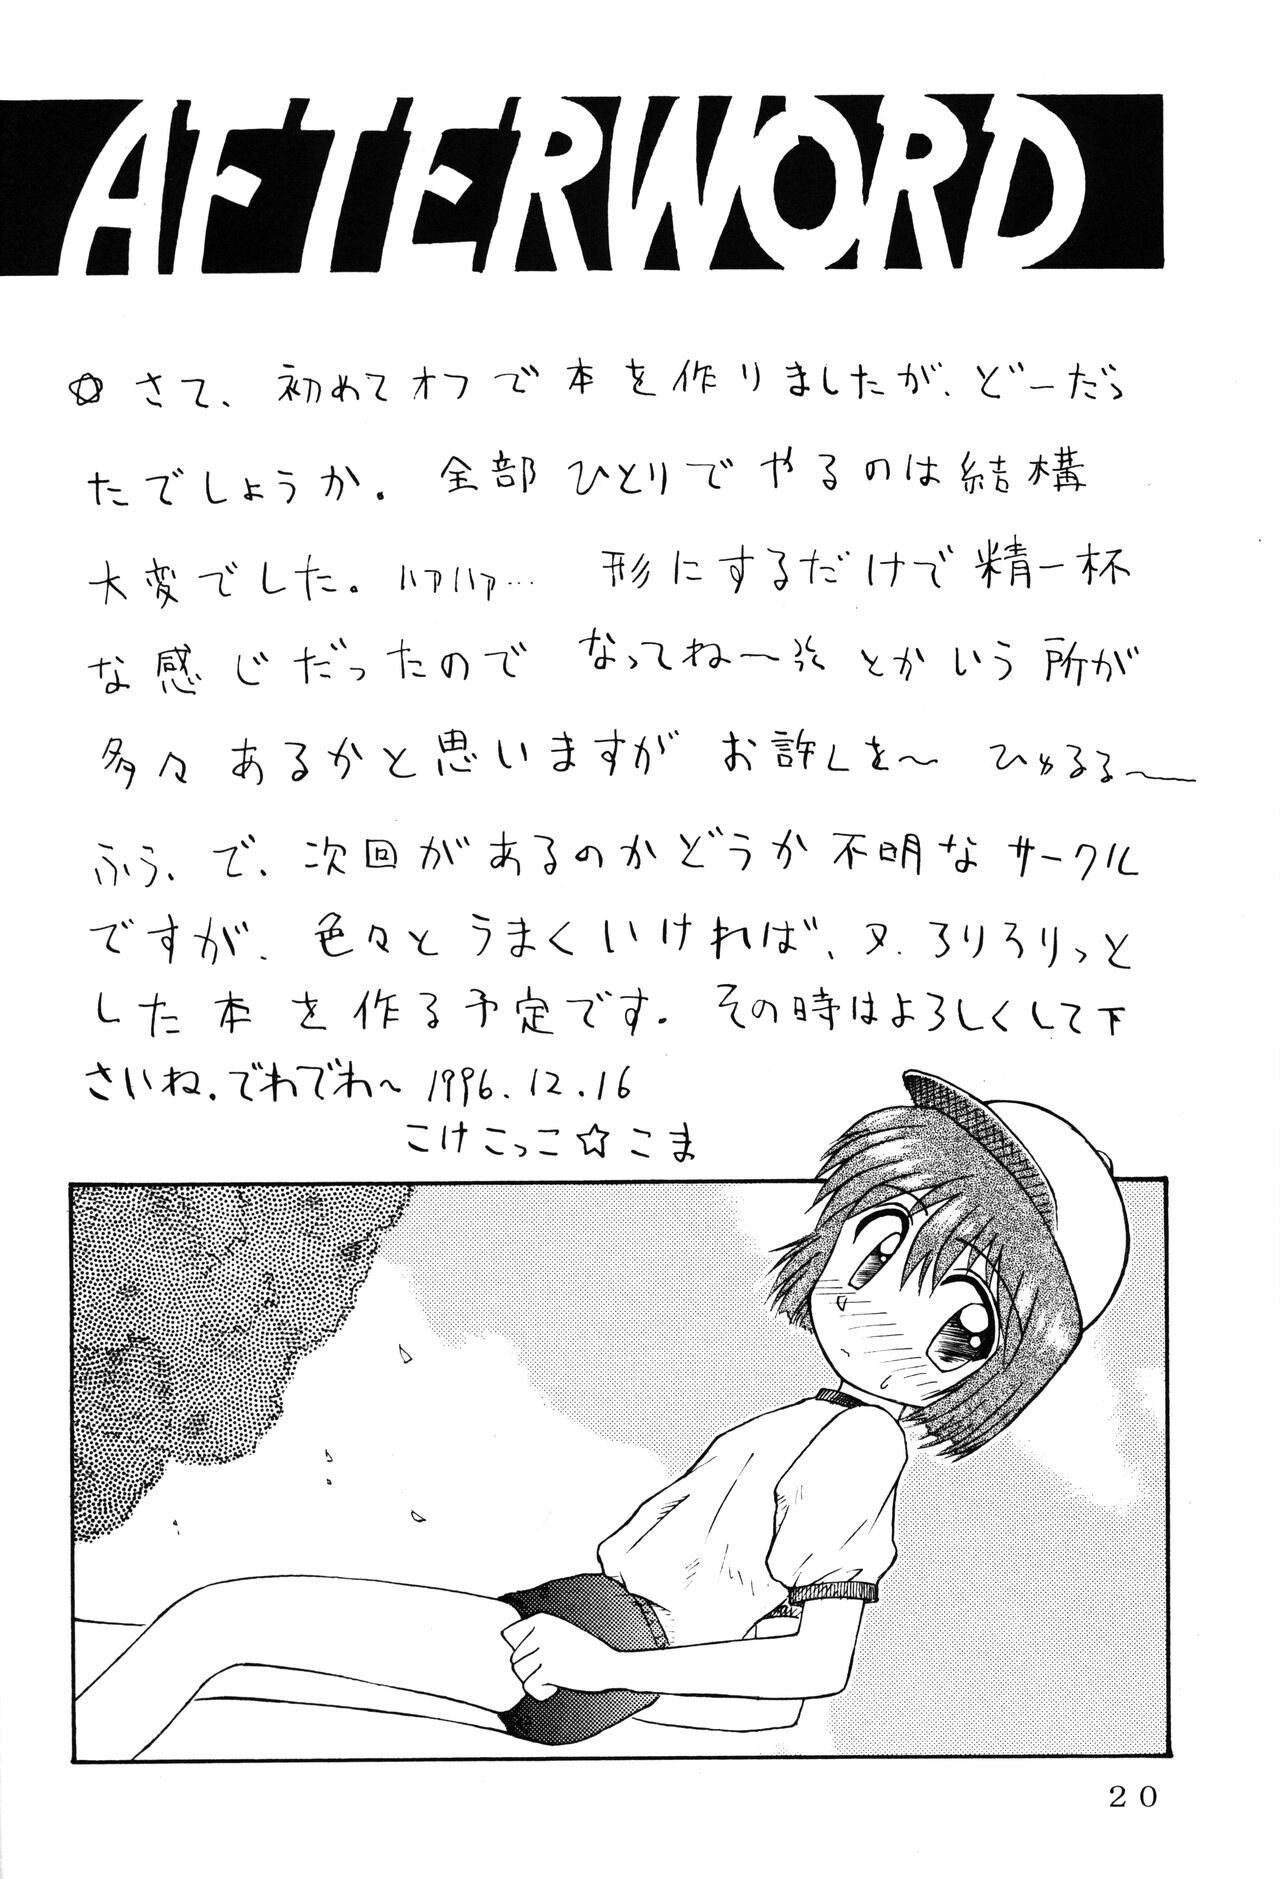 AFTERWORD
☆さて、初めてオフで本を作りましたが、どーだっ
たでしょうか。全部ひとりでやるのは結構
大変でした。ハァハァ… 形にするだけで精一杯
な感じだったので なってね〜 とかいう所が
多々あるかと思いますが お許しを〜 ひゅるる〜
ふう、で、次回があるのかどうか不明なサークル
ですが、色々とうまくいければ、又、ろりろりっと
した本を作る予定です。その時はよろしくして下
さいね。でわでわ〜 1996.12.16
こけこっこ☆こま
20